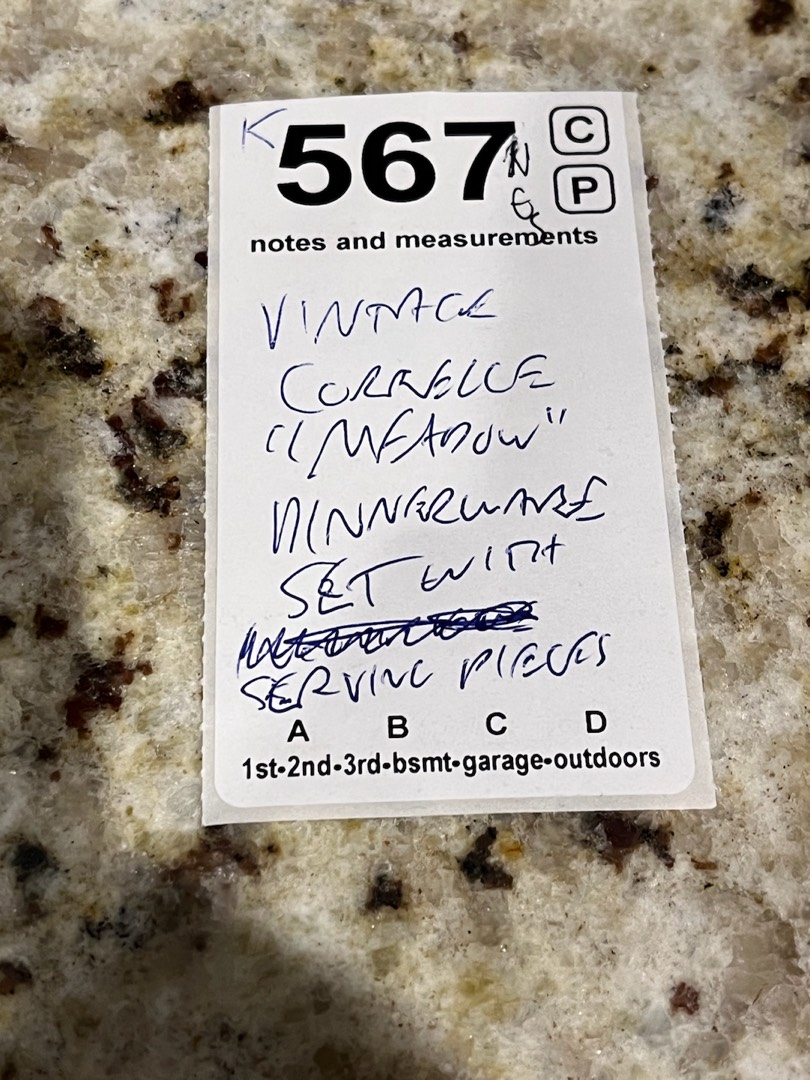 K 567 C
N P
notes and measurements
VINTAGE
CORRELLE
"MEADOW"
DINNERWARE
SET WITH
SERVING PIECES
A B C D
1st-2nd-3rd-bsmt-garage-outdoors